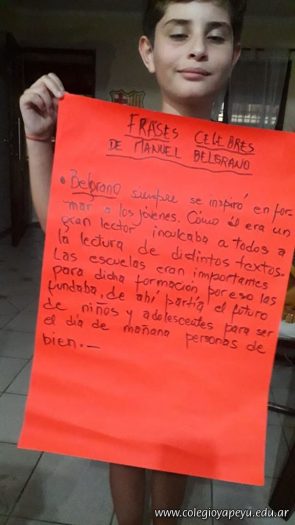 FRASES CELEBRES
DE MANUEL BELGRANO
• Belgrano siempre se inspiró en for
mar a los jóvenes. Cómo él era un
gran lector inculcaba a todos a
la lectura de distintos textos.
Las escuelas eran importantes
para dicha formación por eso las
fundaba, de ahí partía el futuro
de niños y adolescentes para ser
el día de mañana personas de
bien.—
www.colegioyapeyu.edu.ar